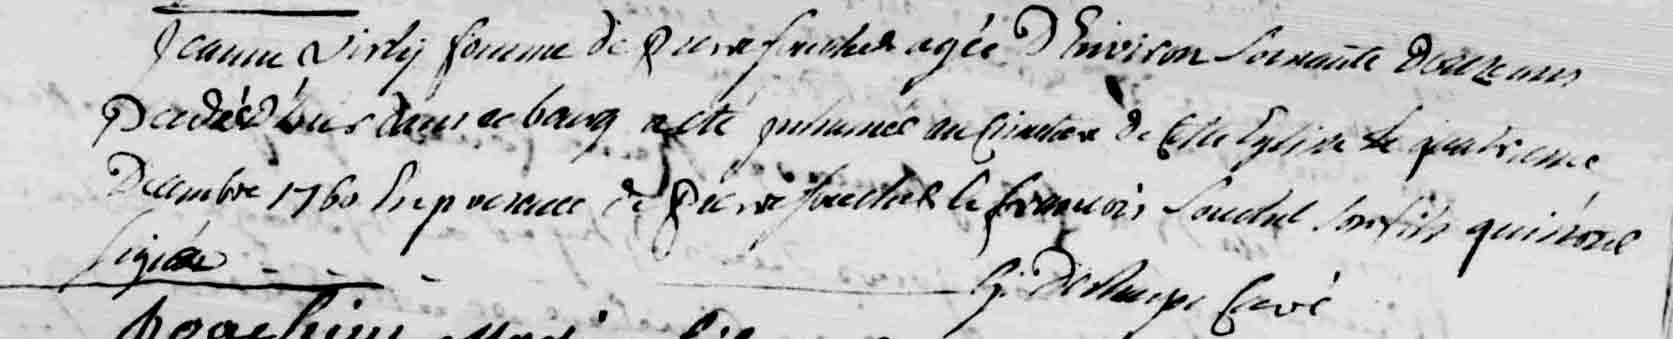 Jeanne Virly femme de pierre fouchet agée D'Environ soixante douze ans
Decedée d'hier dans ce bourg a été inhumée au cimetiere de cette Eglise le quatrieme
Decembre 1760 En presence de pierre fouchet & françois fouchet son fils qui n'ont
signés
curé
Joachim